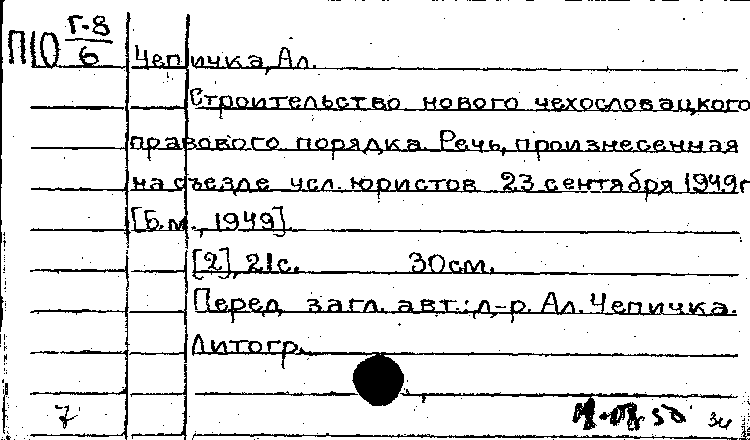 П10 Г-8/6
Чепичка, Ал.
Строительство нового чехословацкого
правового порядка. Речь, произнесенная
на съезде чсл. юристов 23 сентября 1949г
[Б.м., 1949].
[2], 21с. 30см.
Перед загл. авт.: д-р. Ал. Чепичка.
Литогр.
7